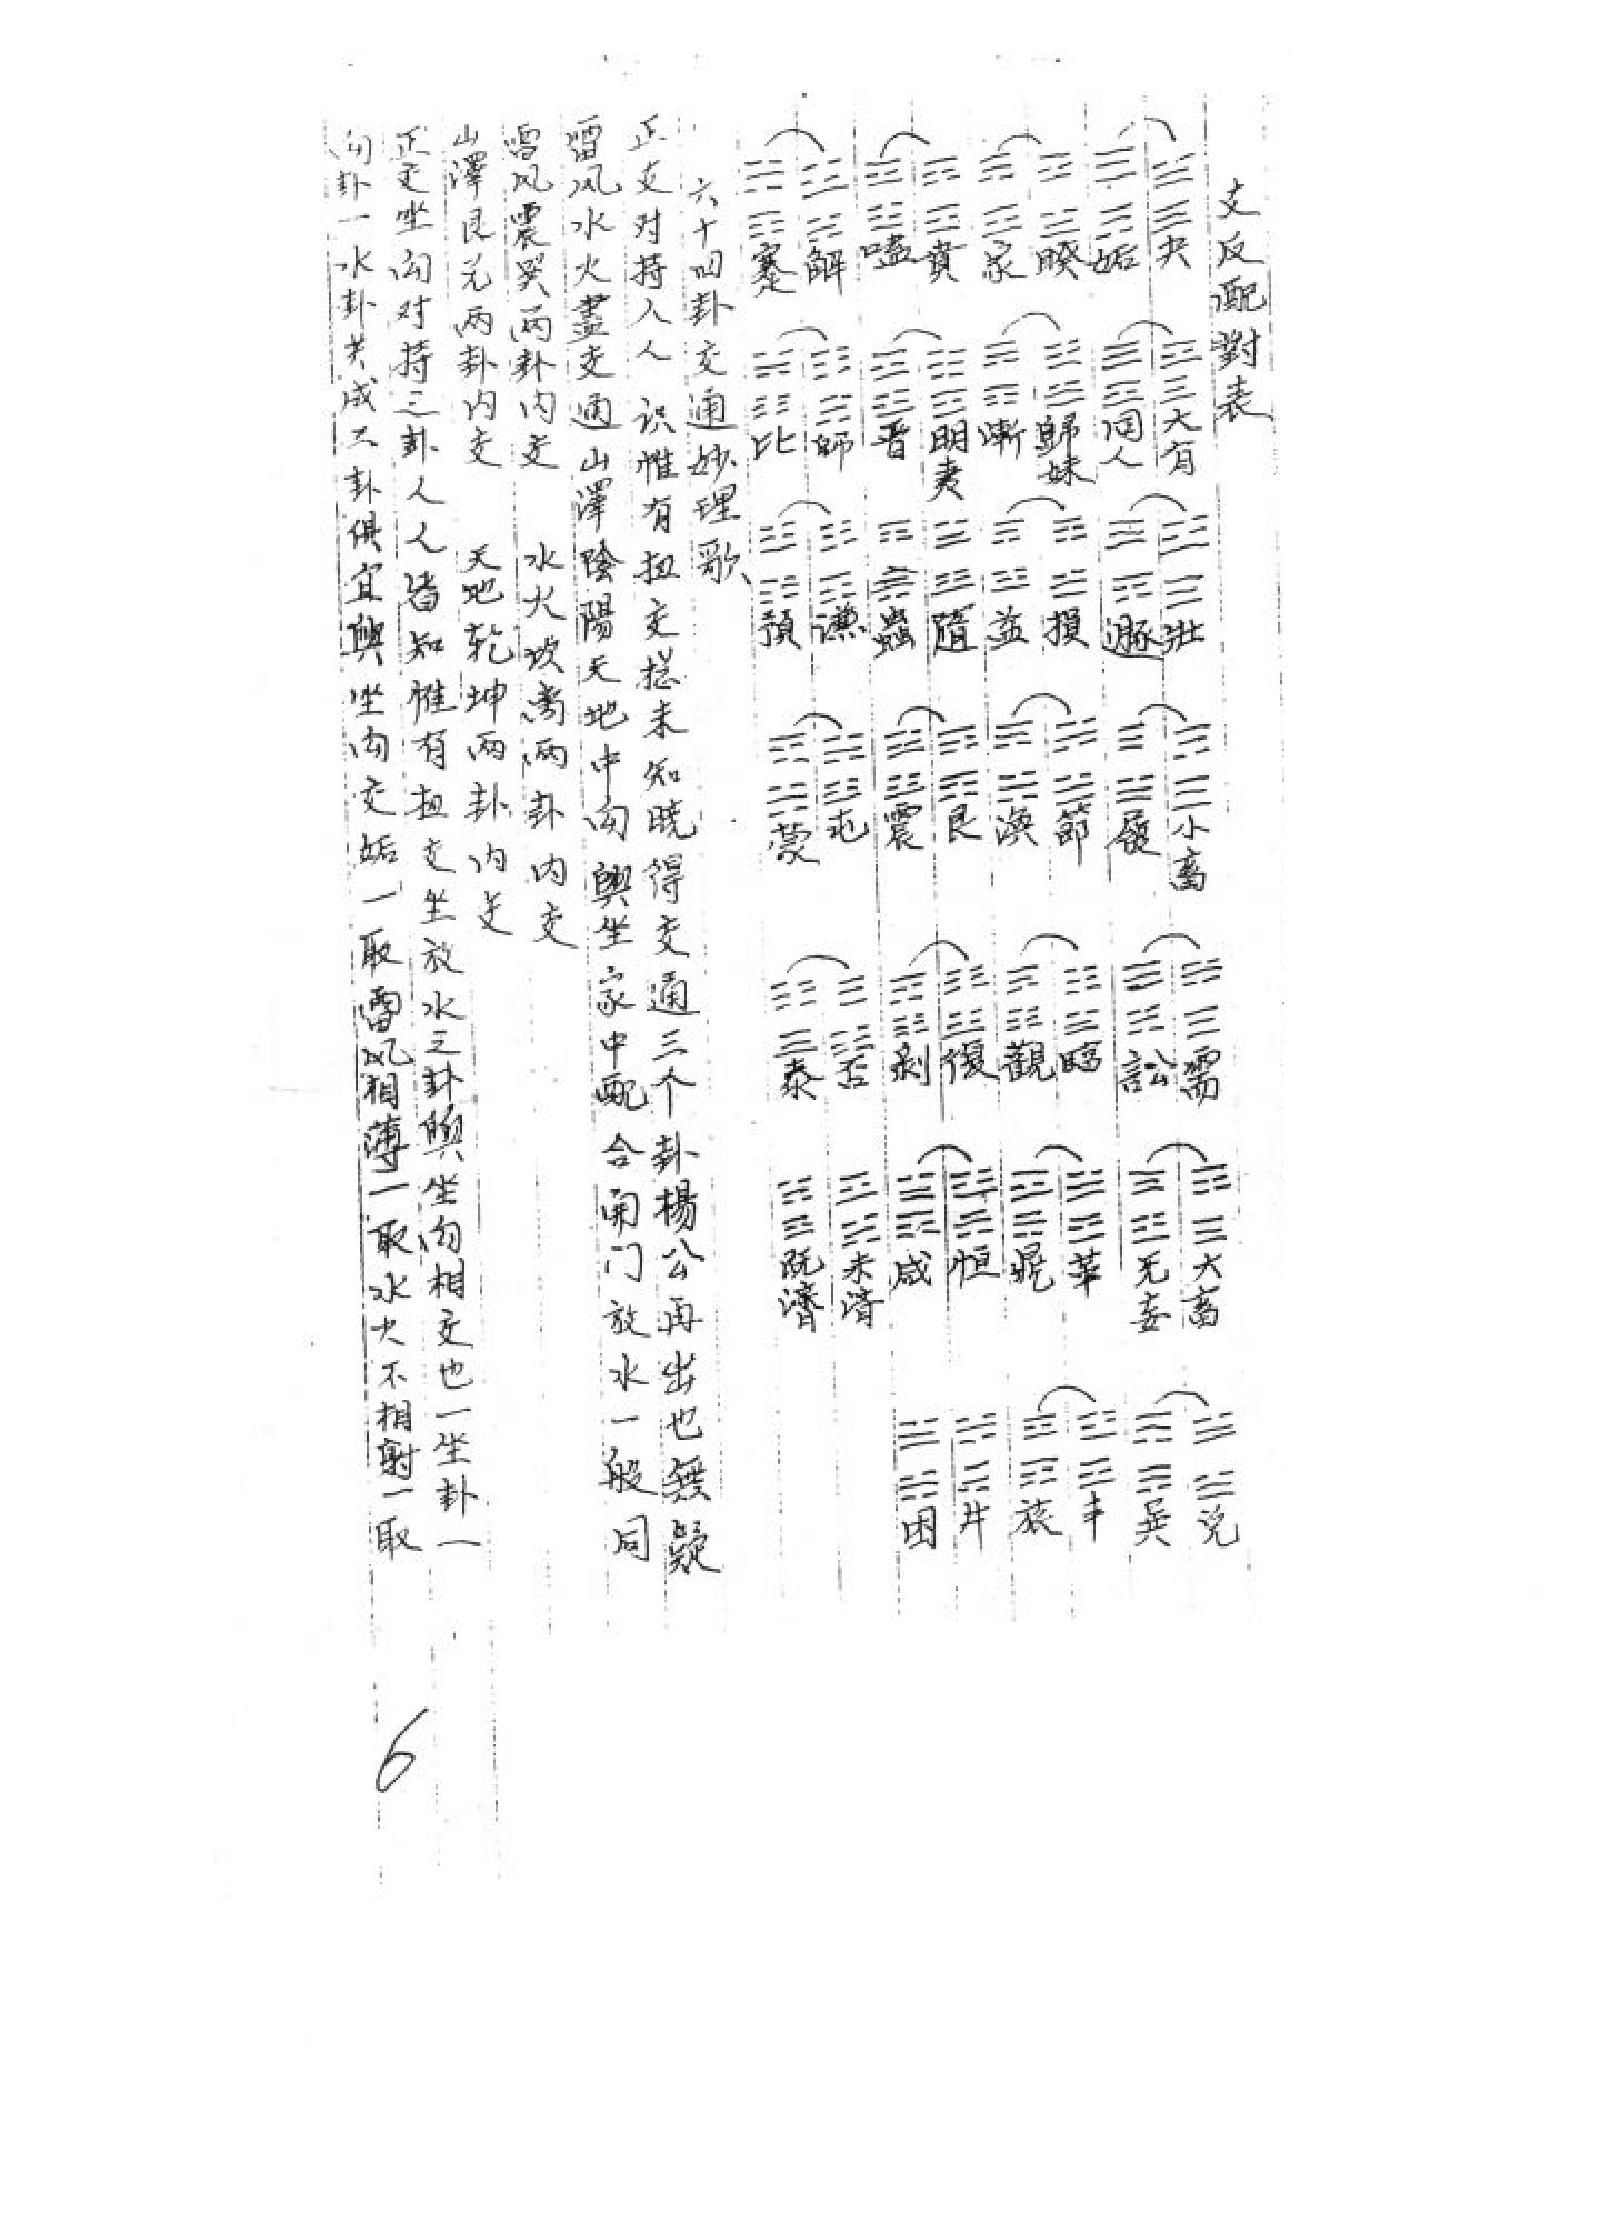 支反配對表
夬 大有 壯 小畜 需 大畜 兑
姤 同人 遯 履 訟 无妄 巽
睽 歸妹 損 節 臨 革 丰
家 漸 益 渙 觀 鼎 旅
賁 明夷 隨 艮 復 恒 井
嗑 晋 蠱 震 剥 咸 困
解 師 謙 屯 否 未濟
蹇 比 預 蒙 泰 既濟
六十四卦交通妙理歌
正交对持人人识惟有扭交捴未知晓得交通三个卦楊公再出也無疑
雷风水火盡交通山澤陰陽天地中向與坐家中配合開门放水一般同
雷风震巽两卦内交 水火坎离两卦内交
山澤艮兑两卦内交 天地乾坤两卦内交
正交坐向对持三卦人人皆知惟有扭交坐放水三卦與坐向相交也一坐卦一
向卦一水卦共成三卦俱宜與坐向交姤一取雷风相薄一取水火不相射一取
6